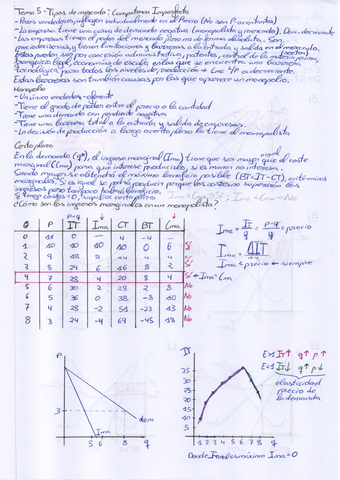 Tema 5 - Tipos de mercado: Competencia Imperfecta
- Pocos vendedores, influyen individualmente en el Precio (No son P-aceptantes)
- La empresa tiene una curva de demanda negativa (monopolista y mercado). Dem. decreciente
- Las empresas tienen el poder del mercado pero de forma absoluta. Son
precio decisores y tienen limitaciones y barreras a la entrada y salida en el mercado.
Estas pueden ser por concesión administrativa, patentes, control de la materia prima,
franquicia legal, economías de escala, en las que se encuentra una barrera
tecnológica para todos los niveles de producción → CMe ↑P es decreciente.
Estas barreras son también causas por las que aparece un monopolio.
Monopolio
- Un único vendedor - oferente
- Tiene el grado de poder entre el precio o la cantidad
- Tiene una demanda con pendiente negativa
- Tiene una barrera total a la entrada y salida de empresas.
- La decisión de producción a largo o corto plazo la tiene el monopolista
Corto plazo
En la demanda (q*), el ingreso marginal (Ima) tiene que ser mayor que el coste
marginal (Cma) para que interese producirlo, si es menor no interesa.
Siendo mayor se obtendrá el máximo beneficio posible (BT=IT-CT), en términos
marginales. Si es igual se podrá producir porque los costes no superarían los
ingresos pero tampoco habría beneficio.
q tiene costes = 0, supedita corto plazo
¿Cómo son los ingresos marginales en un monopolista?
P*q
Q P IT Ima CT BT Cma
0 11 0 - 4 -4 -
1 10 10 10 10 0 6 Sí
2 9 18 8 14 4 4 Sí
3 8 24 6 16 8 2 Sí
4 7 28 4 20 8 4 Sí → Ima = Cma
5 6 30 2 28 2 8 No
6 5 36 0 38 -8 10 No
7 4 28 -2 51 -23 13 No
8 3 24 -4 69 -45 18 No
Ime = IT/q = P·q/q = precio
Ima = ΔIT
Ima ≤ precio ← siempre
P
3
dem
Ima
5 6 q
IT
35
30
25
20
15
10
5
1 2 3 4 5 6 7 8 q
E>1 IT↑ q↑ p↑
E<1 IT↓ q↑ p↓
elasticidad
precio de
la demanda
Donde IT es máximo Ima = 0